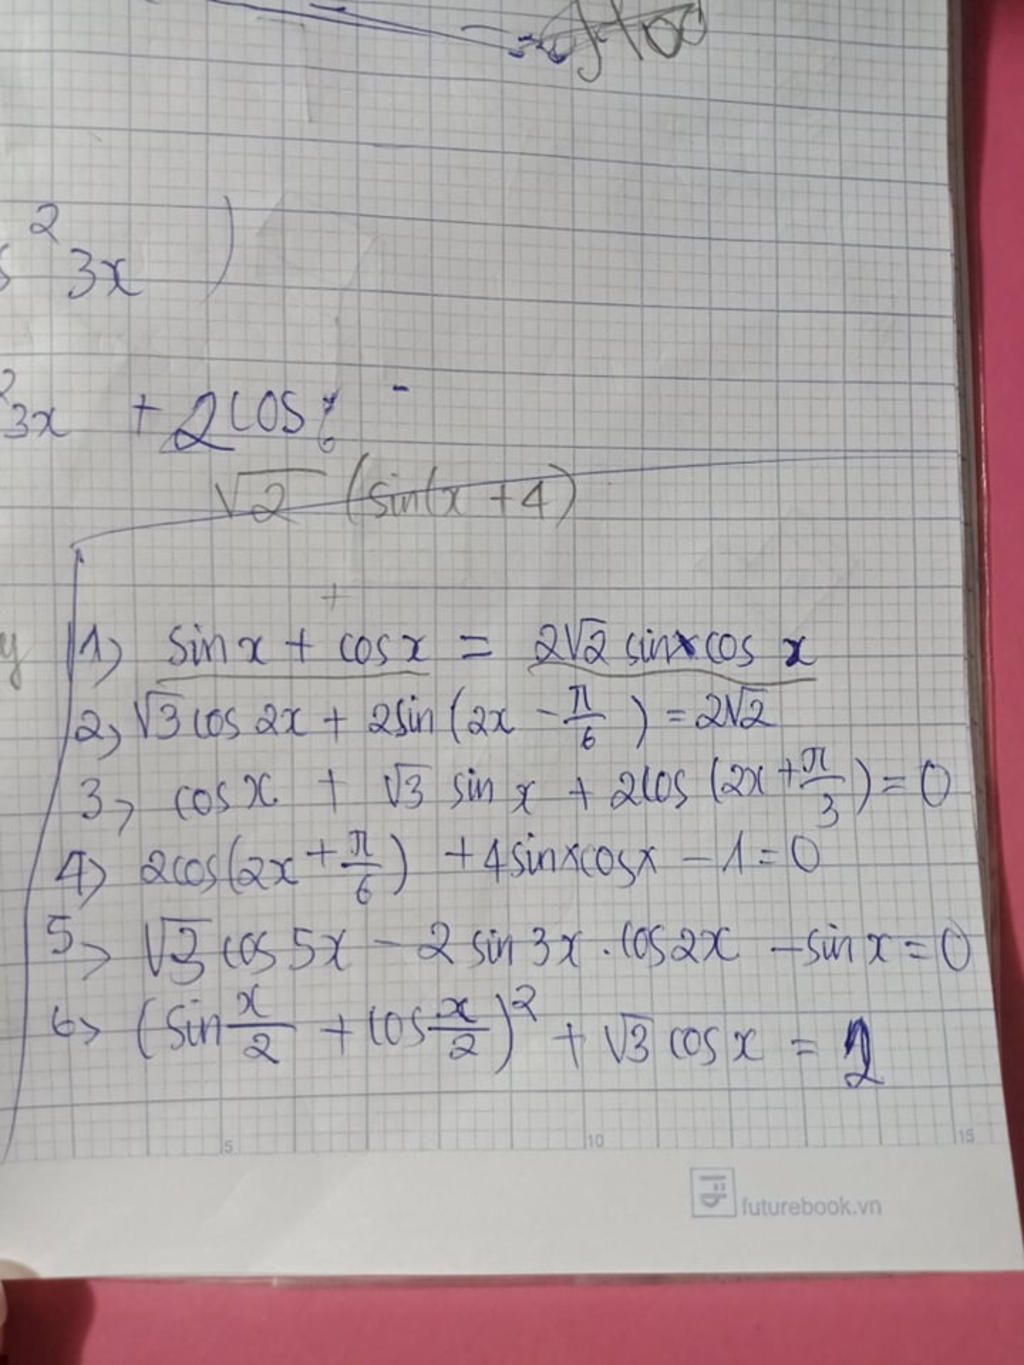 2
3x )
2
3x + 2cos
√2 (sin(x + 4)
+
y
1) sin x + cos x = 2√2 sinx cos x
2) √3 cos 2x + 2sin (2x - π/6) = 2√2
3) cos x + √3 sin x + 2cos (2x + π/3) = 0
4) 2cos(2x + π/6) + 4sinxcosx - 1 = 0
5) √3 cos 5x - 2 sin 3x . cos2x - sin x = 0
6) (sin x/2 + cos x/2)² + √3 cos x = 2
5 10 15
futurebook.vn